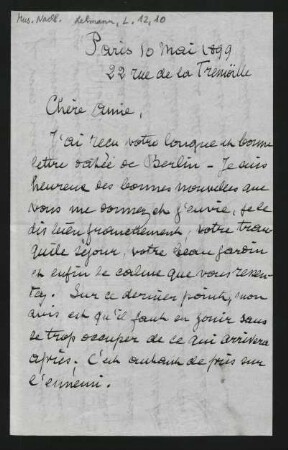 Mus. Nachl. Lehmann, L. 12,10
Paris 10 Mai 1899
22 rue de la Trémoille
Chère Amie,
J'ai reçu votre longue et bonne
lettre datée de Berlin – Je suis
heureux des bonnes nouvelles que
vous me donnez et j'envie, je le
dis bien franchement, votre tran-
quille séjour, votre beau jardin
et enfin le calme que vous ressen-
tez. Sur ce dernier point, mon
avis est qu'il faut en jouir sans
se trop occuper de ce qui arrivera
après. C'est autant de pris sur
l'ennemi.